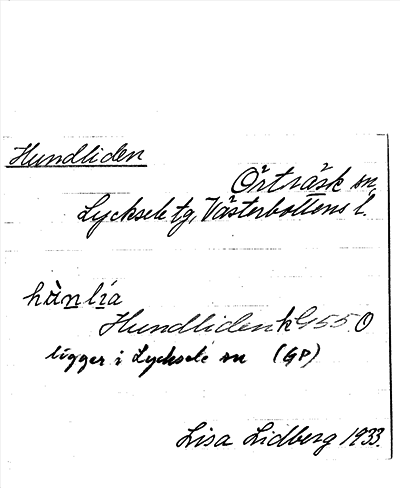 Hundliden
Örträsk sn,
Lycksele tg, Västerbottens l.
hànlía
Hundliden k G55 O
ligger i Lycksele sn (GP)
Lisa Lidberg 1933.